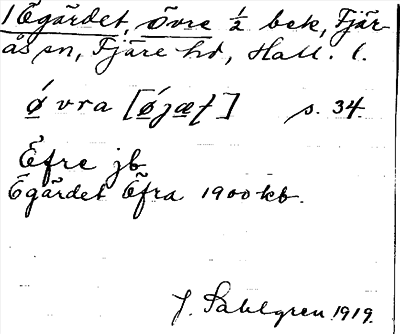 1 Egärdet, Övre ½ bek, Fjär-
ås sn, Fjäre hd, Hall. l.
ǿvra [ǿjæʈ] s. 34.
Efre jb
Egärdet Efra 1900 kb.
J. Sahlgren 1919.